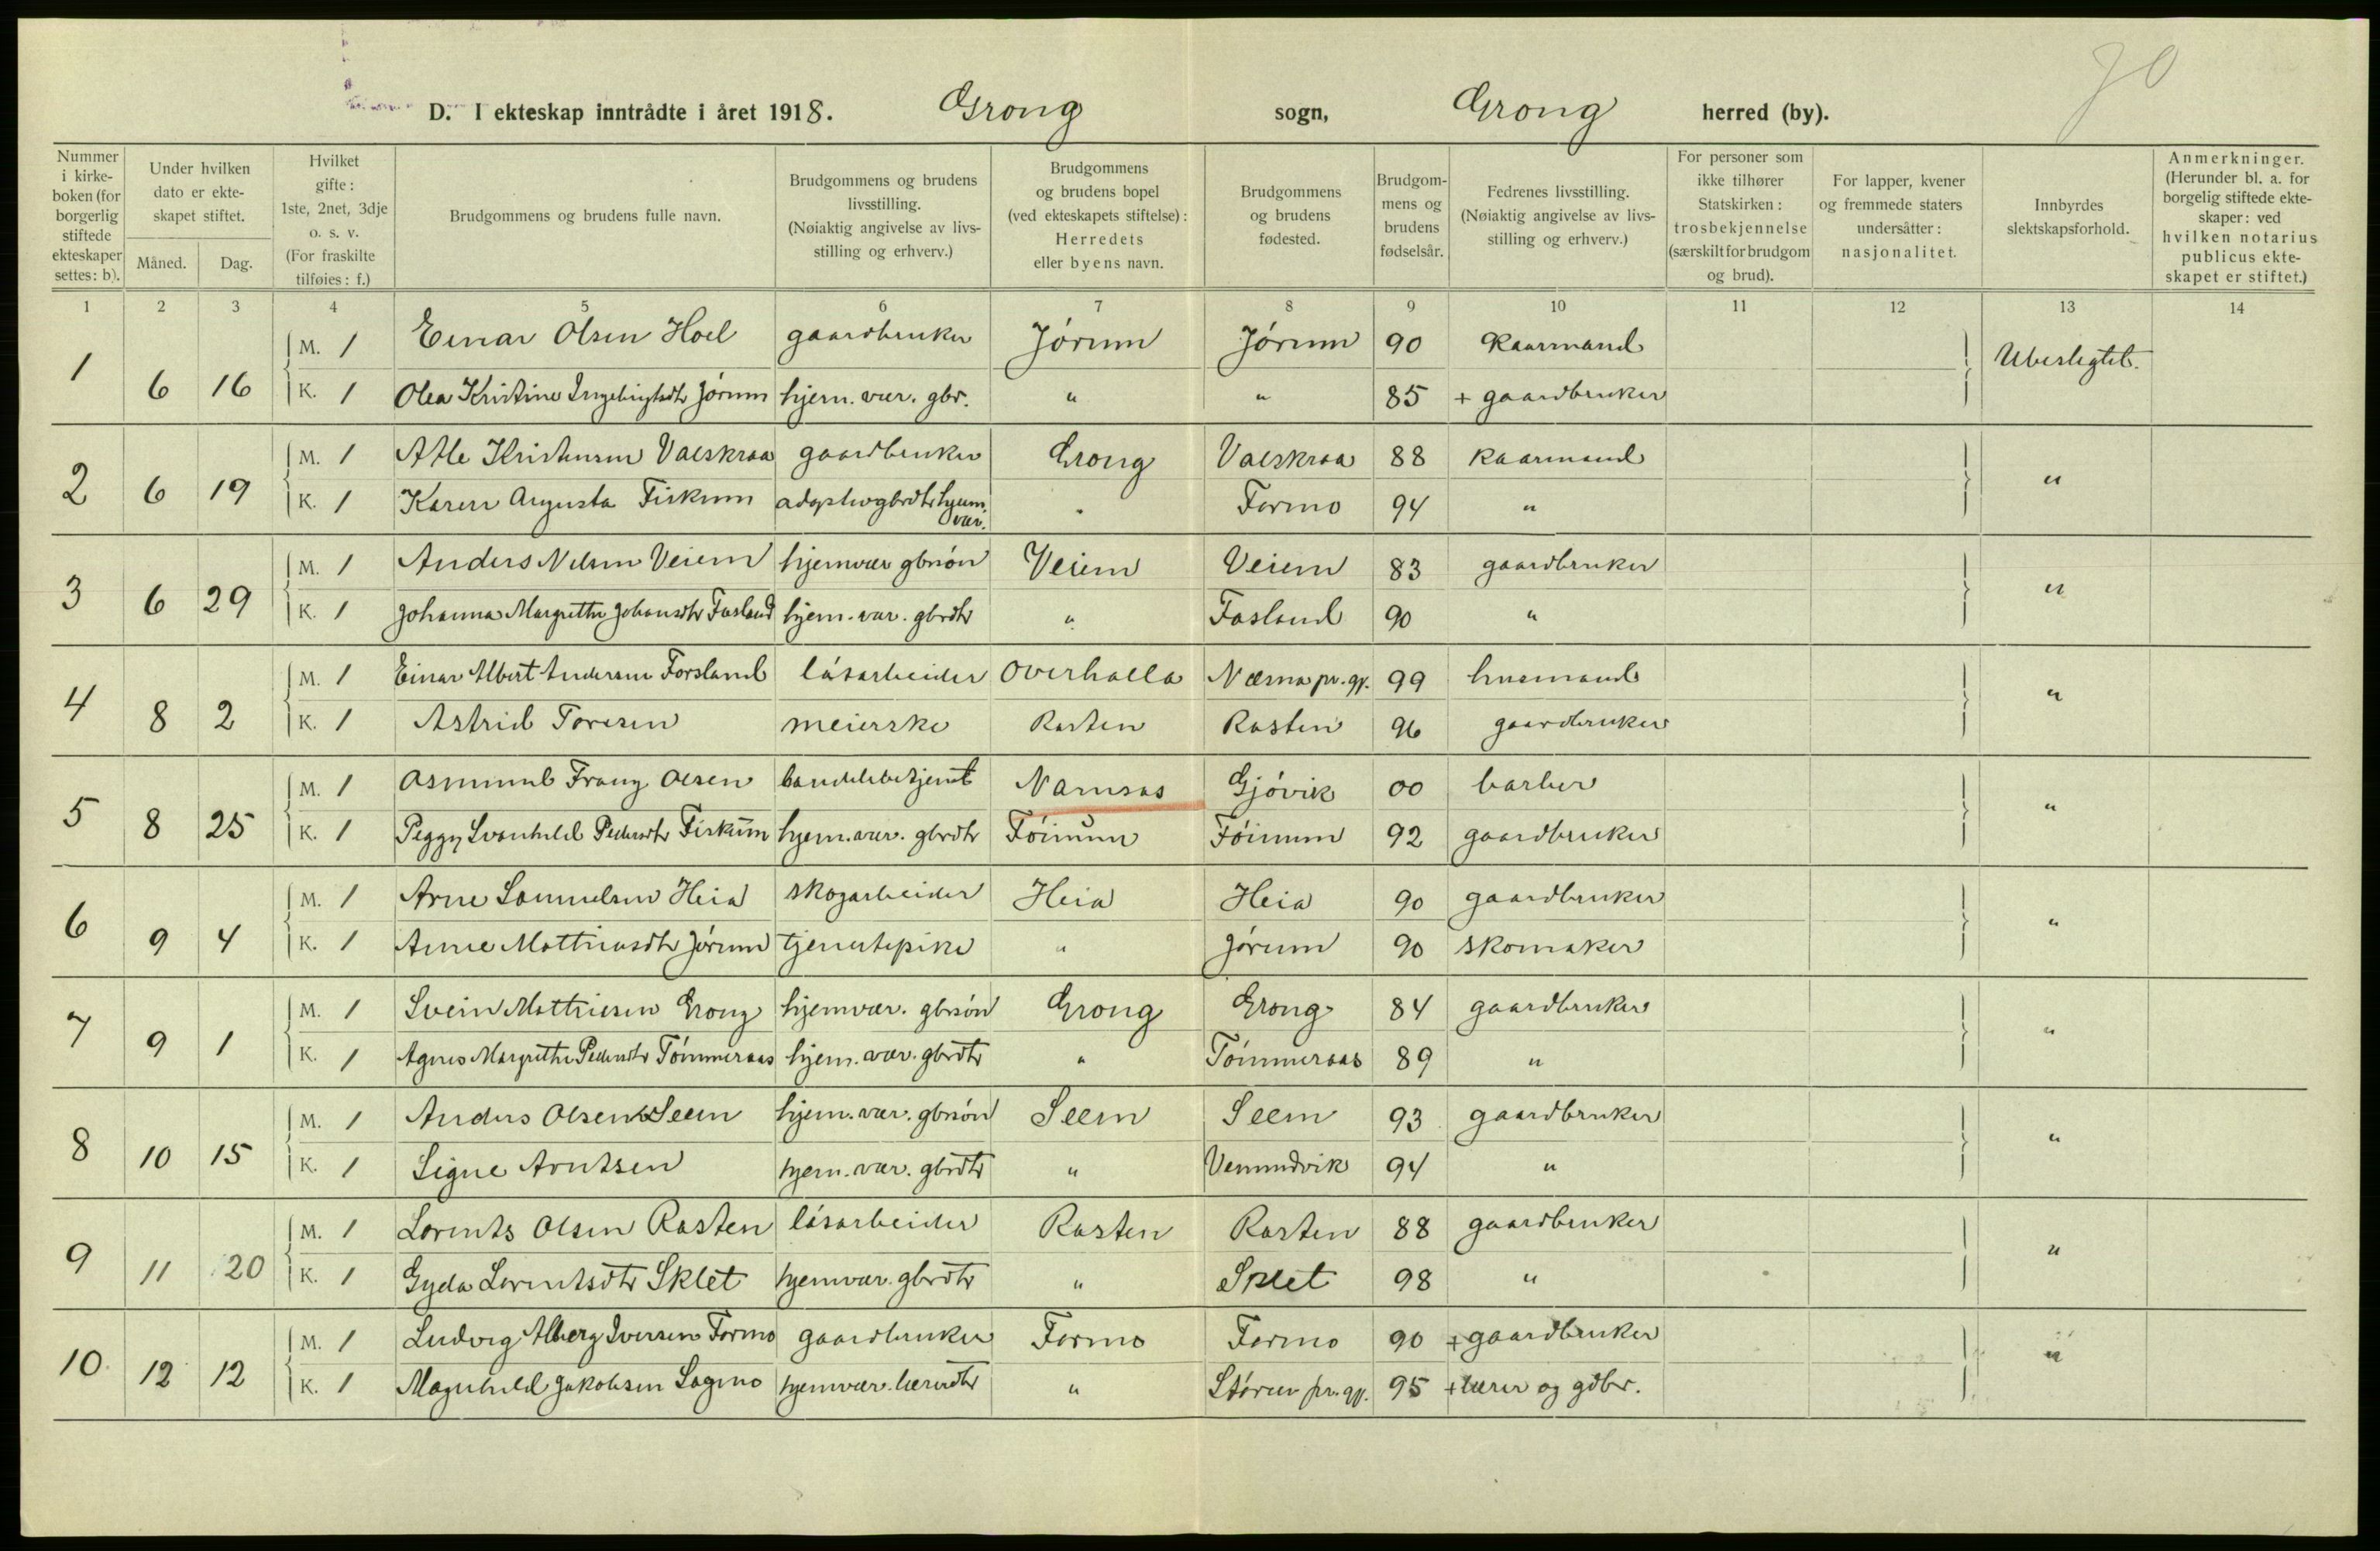 70
D. I ekteskap inntrådte i året 1918. Grong sogn, Grong herred (by).
Nummer i kirkeboken (for borgerlig stiftede ekteskaper settes: b).
Under hvilken dato er ekteskapet stiftet.
Måned. Dag.
Hvilket gifte: 1ste, 2net, 3dje o. s. v. (For fraskilte tilføies: f.)
Brudgommens og brudens fulle navn.
Brudgommens og brudens livsstilling. (Nøiaktig angivelse av livsstilling og erhverv.)
Brudgommens og brudens bopel (ved ekteskapets stiftelse): Herredets eller byens navn.
Brudgommens og brudens fødested.
Brudgommens og brudens fødselsår.
Fedrenes livsstilling. (Nøiaktig angivelse av livsstilling og erhverv.)
For personer som ikke tilhører Statskirken: trosbekjennelse (særskilt for brudgom og brud).
For lapper, kvener og fremmede staters undersåtter: nasjonalitet.
Innbyrdes slektskapsforhold.
Anmerkninger. (Herunder bl. a. for borgelig stiftede ekteskaper: ved hvilken notarius publicus ekteskapet er stiftet.)
1 2 3 4 5 6 7 8 9 10 11 12 13 14
1 6 16 M. 1 Einar Olsen Hoel gaardbruker Jørum Jørum 90 kaarmand Ubeslegtet.
K. 1 Olea Kristine Ingebrigtsdtr Jørum hjem. vær. gbr. " " 85 + gaardbruker
2 6 19 M. 1 Atle Kristensen Valskraa gaardbruker Grong Valskraa 88 kaarmand "
K. 1 Karen Augusta Fiskum adoptivgbrdtr hjem. vær. " Formo 94 "
3 6 29 M. 1 Anders Nilsen Veiem hjemvær gbrsøn Veiem Veiem 83 gaardbruker "
K. 1 Johanna Margrethe Johansdtr Fasland hjem. vær. gbrdtr " Fasland 90 "
4 8 2 M. 1 Einar Albert Andersen Forsland løsarbeider Overhalla Nærna pr. gj. 99 husmand "
K. 1 Astrid Toresen meierske Rasten Rasten 96 gaardbruker
5 8 25 M. 1 Asmund Franz Olsen handelsbetjent Namsos Gjøvik 00 barber "
K. 1 Peggy Svanhild Pedersdtr Fiskum hjem. vær. gbrdtr Føinum Føinum 92 gaardbruker
6 9 4 M. 1 Arne Samuelsen Heia skogarbeider Heia Heia 90 gaardbruker "
K. 1 Anne Mathiasdtr Jørum tjenestepike " Jørum 90 skomaker
7 9 1 M. 1 Svein Mathiesen Grong hjemvær. gbrsøn Grong Grong 84 gaardbruker "
K. 1 Agnes Margrethe Pedersdtr Tømmeraas hjem. vær. gbrdtr " Tømmeraas 89 "
8 10 15 M. 1 Anders Olsen Seem hjem. vær. gbrsøn Seem Seem 93 gaardbruker "
K. 1 Signe Arntsen hjem. vær. gbrdtr " Vemundvik 94 "
9 11 20 M. 1 Lorents Olsen Rasten løsarbeider Rasten Rasten 88 gaardbruker "
K. 1 Gyda Lorentsdtr Sklet hjemvær. gbrdtr " Sklet 98 "
10 12 12 M. 1 Ludvig Alberg Iversen Formo gaardbruker Formo Formo 90 + gaardbruker "
K. 1 Magnhild Jakobsen Sagmo hjemvær. lærerdtr " Støren pr. gj. 95 + lærer og gdbr.